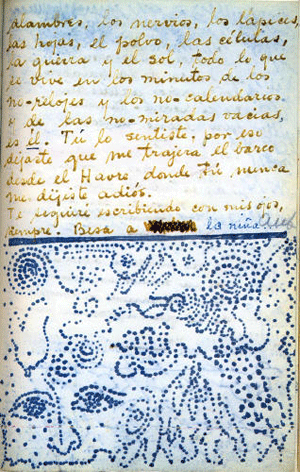 alambres, los nervios, los lápices,
las hojas, el polvo, las células,
la guerra y el sol, todo lo que
se vive en los minutos de los
no-relojes y los no-calendarios
y de las no-miradas vacias,
es él. Tú lo sentiste, por eso
dejaste que me trajera el barco
desde el Havre donde tú nunca
me dijiste adiós.
Te seguire escribiendo con mis ojos,
siempre. Besa a la niña